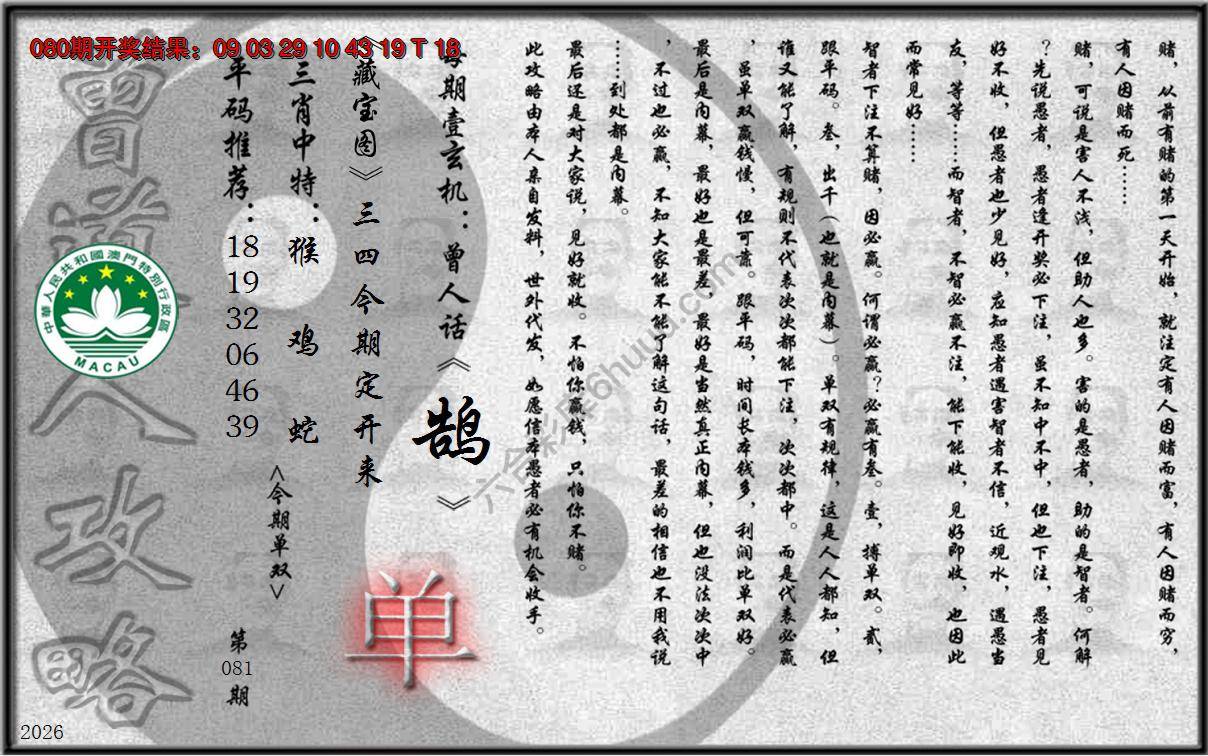 080期开奖结果：09 03 29 10 43 19 T 18
赌，从前有赌的第一天开始，就注定有人因赌而富，有人因赌而穷，
有人因赌而死……
赌，可说是害人不浅，但助人也多。害的是愚者，助的是智者。何解
？先说愚者，愚者逢开奖必下注，虽不知中不中，但也下注，愚者见
好不收，但愚者也少见好，应知愚者遇害智者不信，近观水，遇愚当
友，等等……而智者，不智必赢不注，能下能收，见好即收，也因此
而常见好……
智者下注不算赌，因必赢。何谓必赢？必赢有叁。壹，搏单双。贰，
跟平码。叁，出千（也就是内幕）。单双有规律，这是人人都知，但
谁又能了解，有规则不代表次次都能下注，次次都中。而是代表必赢
，虽单双赢钱慢，但可靠。跟平码，时间长本钱多，利润比单双好。
最后是内幕，最好也是最差，最好是当然真正内幕，但也没法次次中
，不过也必赢，不知大家能不能了解这句话，最差的相信也不用我说
……到处都是内幕。
最后还是对大家说，见好就收。不怕你赢钱，只怕你不赌。
此攻略由本人亲自发料，世外代发，如愿信本愚者必有机会收手。
每期壹玄机：曾人话《鹄》
《藏宝图》三四今期定开来
三肖中特：猴 鸡 蛇
<今期单双>
单
平码推荐：18 19 32 06 46 39
第081期
曾道人攻略
中華人民共和國澳門特別行政區
MACAU
2026